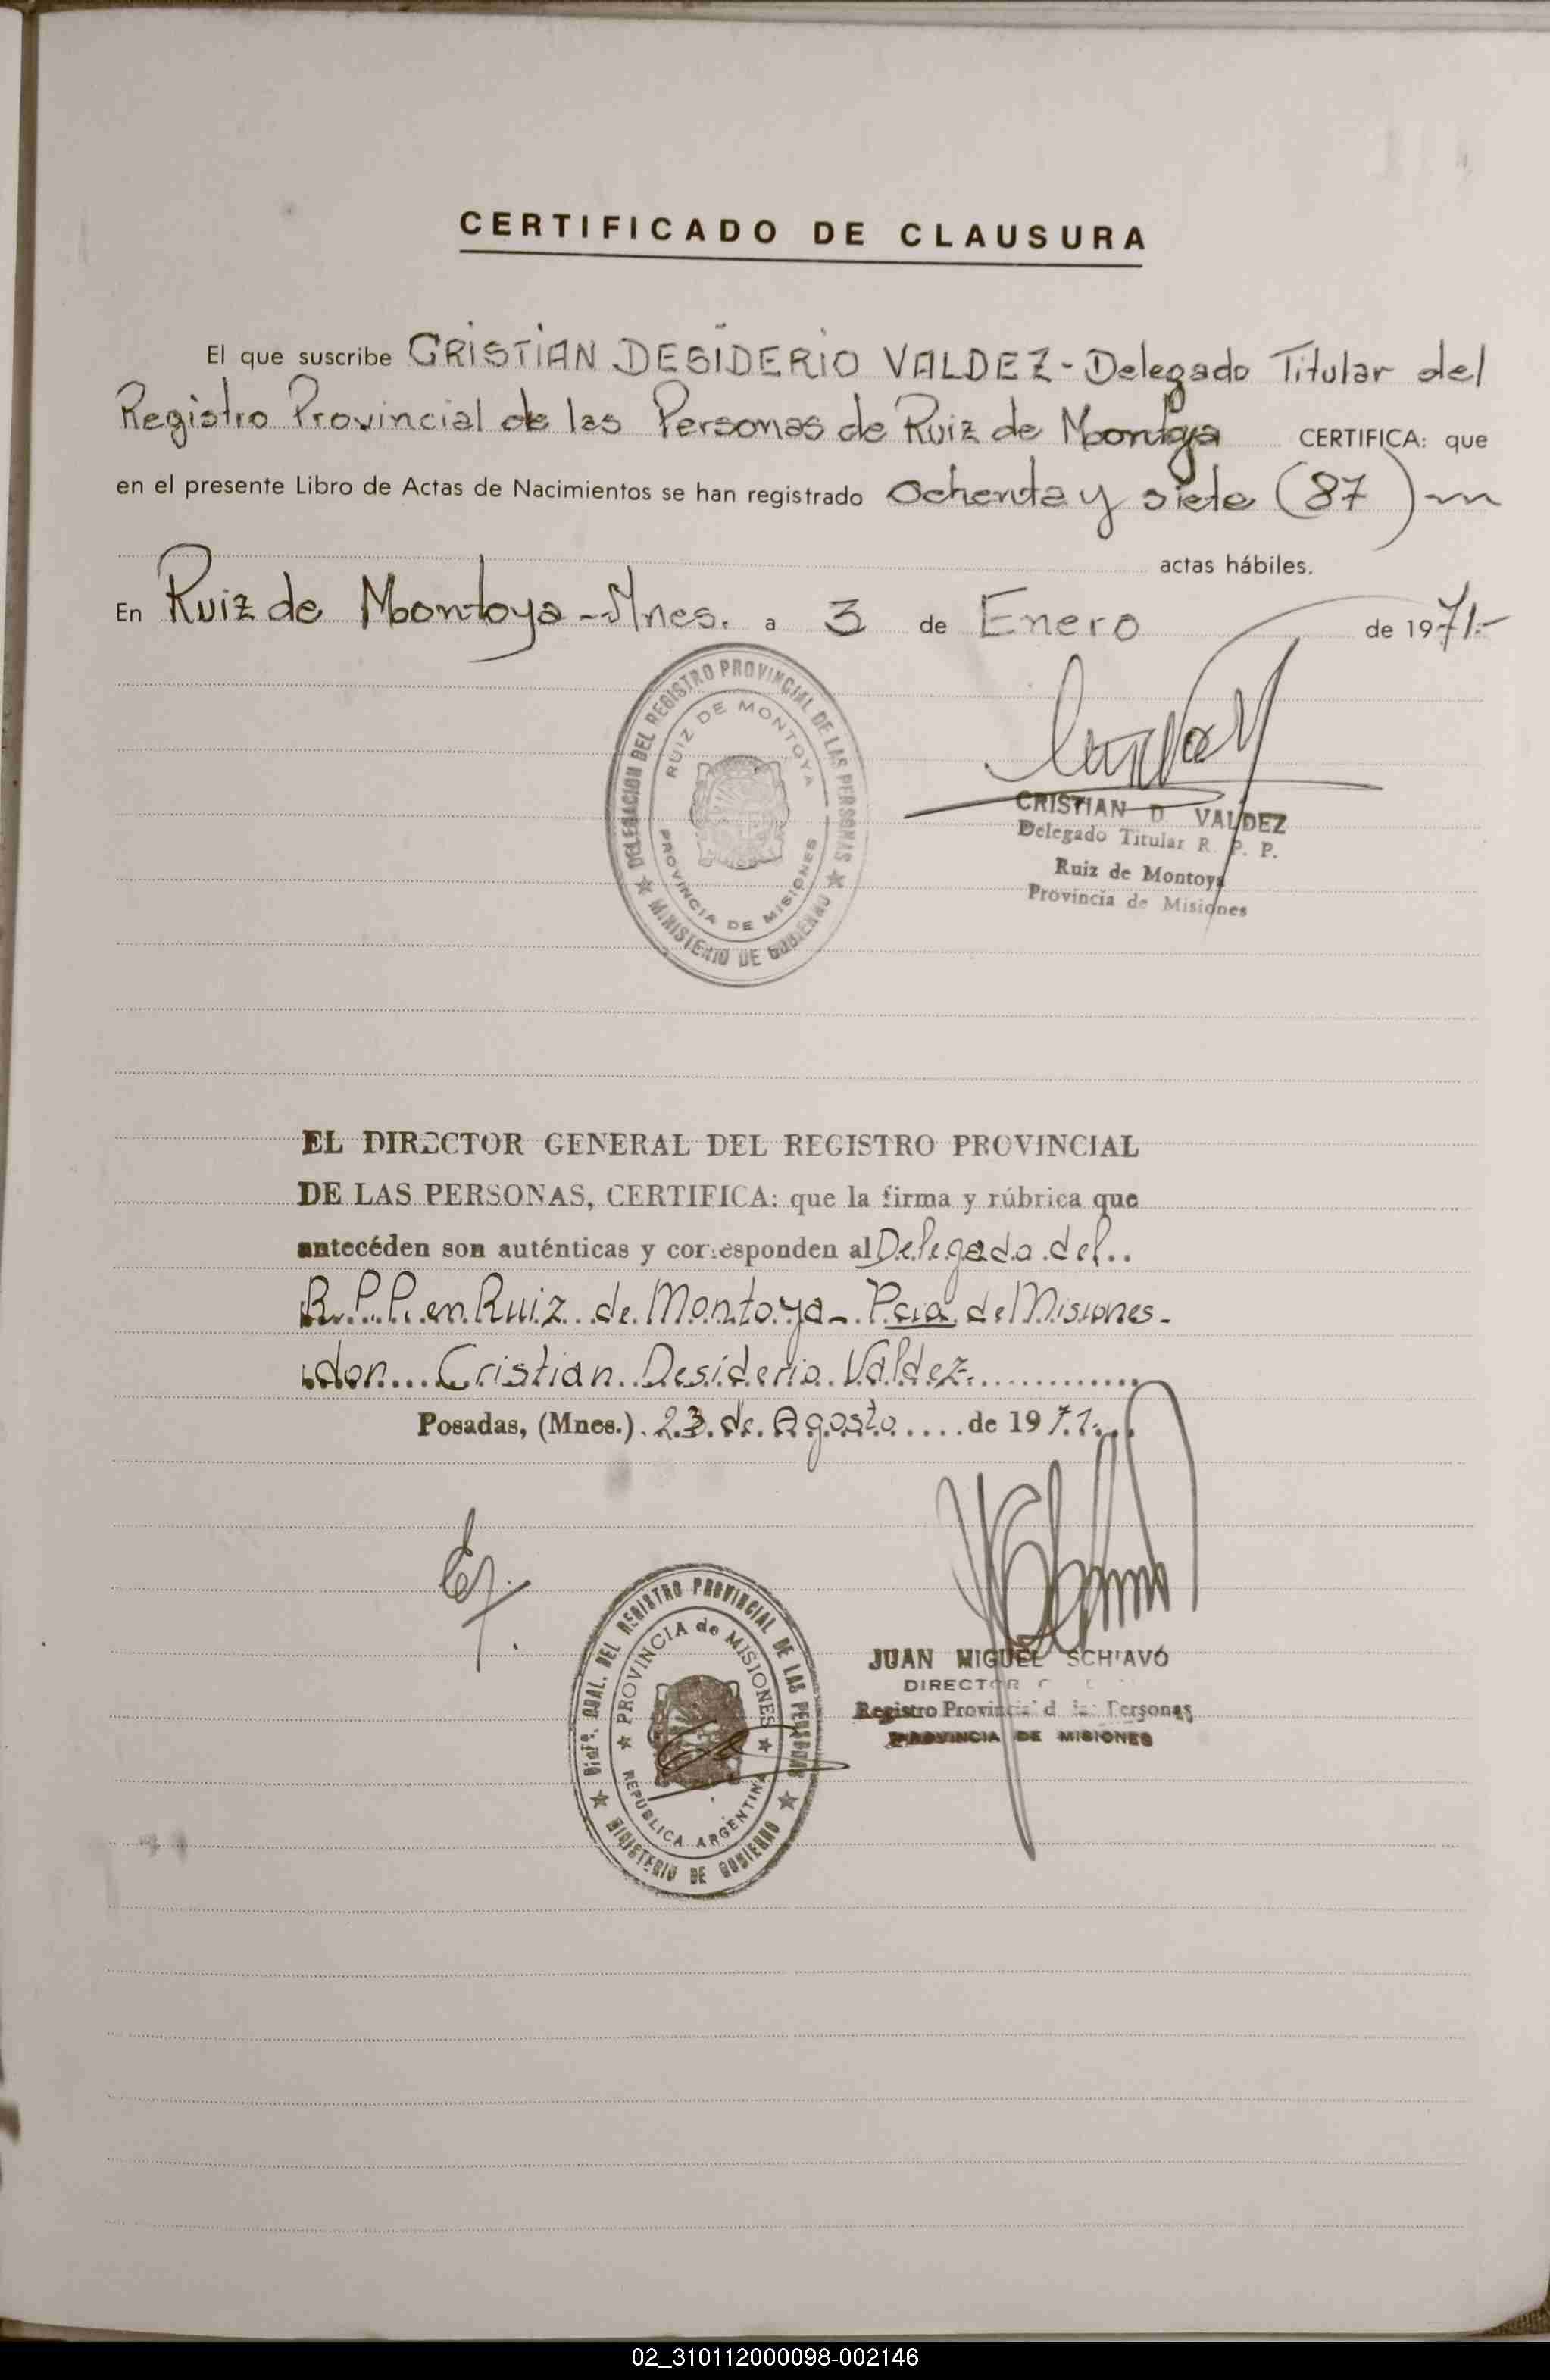 CERTIFICADO DE CLAUSURA
El que suscribe CRISTIAN DESIDERIO VALDEZ - Delegado Titular del
Registro Provincial de las Personas de Ruiz de Montoya CERTIFICA: que
en el presente Libro de Actas de Nacimientos se han registrado Ochenta y siete (87)
actas hábiles.
En Ruiz de Montoya - Mnes. a 3 de Enero de 1971.-
DELEGACION DEL REGISTRO PROVINCIAL DE LAS PERSONAS
RUIZ DE MONTOYA
PROVINCIA DE MISIONES
MINISTERIO DE GOBIERNO
CRISTIAN D. VALDEZ
Delegado Titular R. P. P.
Ruiz de Montoya
Provincia de Misiones
EL DIRECTOR GENERAL DEL REGISTRO PROVINCIAL
DE LAS PERSONAS, CERTIFICA: que la firma y rúbrica que
antecéden son auténticas y corresponden al Delegado del..
R.P.P. en Ruiz de Montoya - Pcia de Misiones -
don.... Cristian Desiderio Valdez.............
Posadas, (Mnes.). 23 de Agosto ..... de 1971...
Direc. GRAL. DEL REGISTRO PROVINCIAL DE LAS PERSONAS
PROVINCIA de MISIONES
REPÚBLICA ARGENTINA
MINISTERIO DE GOBIERNO
JUAN MIGUEL SCHIAVO
DIRECTOR
Registro Provincial de las Personas
PROVINCIA DE MISIONES
02_310112000098-002146